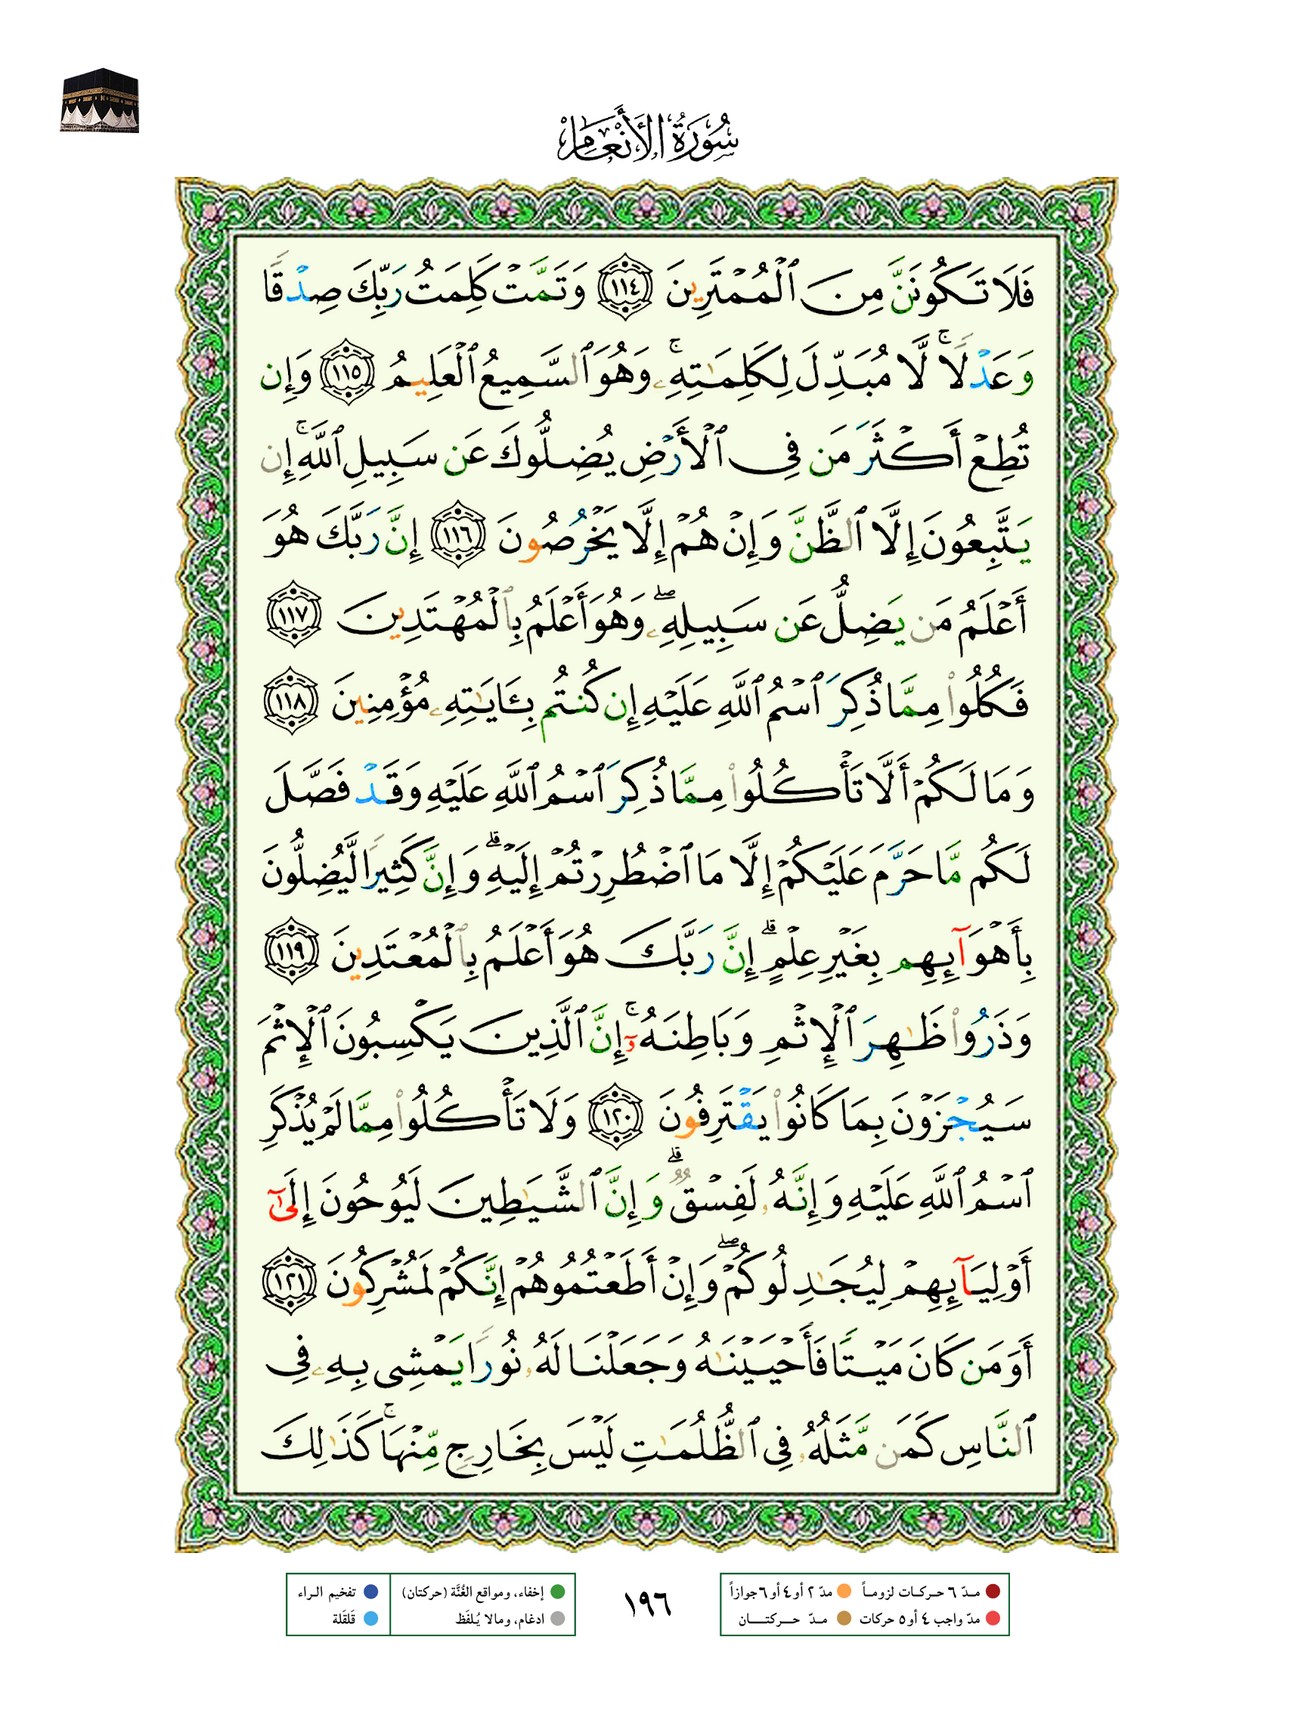 سُورَةُ الأَنْعَامِ
فَلَا تَكُونَنَّ مِنَ ٱلْمُمْتَرِينَ ١١٤ وَتَمَّتْ كَلِمَتُ رَبِّكَ صِدْقًا
وَعَدْلًا ۚ لَّا مُبَدِّلَ لِكَلِمَٰتِهِۦ ۚ وَهُوَ ٱلسَّمِيعُ ٱلْعَلِيمُ ١١٥ وَإِن
تُطِعْ أَكْثَرَ مَن فِى ٱلْأَرْضِ يُضِلُّوكَ عَن سَبِيلِ ٱللَّهِ ۚ إِن
يَتَّبِعُونَ إِلَّا ٱلظَّنَّ وَإِنْ هُمْ إِلَّا يَخْرُصُونَ ١١٦ إِنَّ رَبَّكَ هُوَ
أَعْلَمُ مَن يَضِلُّ عَن سَبِيلِهِۦ ۖ وَهُوَ أَعْلَمُ بِٱلْمُهْتَدِينَ ١١٧
فَكُلُوا۟ مِمَّا ذُكِرَ ٱسْمُ ٱللَّهِ عَلَيْهِ إِن كُنتُم بِـَٔايَٰتِهِۦ مُؤْمِنِينَ ١١٨
وَمَا لَكُمْ أَلَّا تَأْكُلُوا۟ مِمَّا ذُكِرَ ٱسْمُ ٱللَّهِ عَلَيْهِ وَقَدْ فَصَّلَ
لَكُم مَّا حَرَّمَ عَلَيْكُمْ إِلَّا مَا ٱضْطُرِرْتُمْ إِلَيْهِ ۗ وَإِنَّ كَثِيرًا لَّيُضِلُّونَ
بِأَهْوَآئِهِم بِغَيْرِ عِلْمٍ ۗ إِنَّ رَبَّكَ هُوَ أَعْلَمُ بِٱلْمُعْتَدِينَ ١١٩
وَذَرُوا۟ ظَٰهِرَ ٱلْإِثْمِ وَبَاطِنَهُۥٓ ۚ إِنَّ ٱلَّذِينَ يَكْسِبُونَ ٱلْإِثْمَ
سَيُجْزَوْنَ بِمَا كَانُوا۟ يَقْتَرِفُونَ ١٢٠ وَلَا تَأْكُلُوا۟ مِمَّا لَمْ يُذْكَرِ
ٱسْمُ ٱللَّهِ عَلَيْهِ وَإِنَّهُۥ لَفِسْقٌ ۗ وَإِنَّ ٱلشَّيَٰطِينَ لَيُوحُونَ إِلَىٰٓ
أَوْلِيَآئِهِمْ لِيُجَٰدِلُوكُمْ ۖ وَإِنْ أَطَعْتُمُوهُمْ إِنَّكُمْ لَمُشْرِكُونَ ١٢١
أَوَمَن كَانَ مَيْتًا فَأَحْيَيْنَٰهُ وَجَعَلْنَا لَهُۥ نُورًا يَمْشِى بِهِۦ فِى
ٱلنَّاسِ كَمَن مَّثَلُهُۥ فِى ٱلظُّلُمَٰتِ لَيْسَ بِخَارِجٍ مِّنْهَا ۚ كَذَٰلِكَ
مدّ ٦ حركات لزوماً مدّ ٢ أو ٤ أو ٦ جوازاً
مدّ واجب ٤ أو ٥ حركات مدّ حركتان
١٩٦
إخفاء، ومواقع الغُنَّة (حركتان) تفخيم الراء
ادغام، ومالا يُلفَظ قلقلة